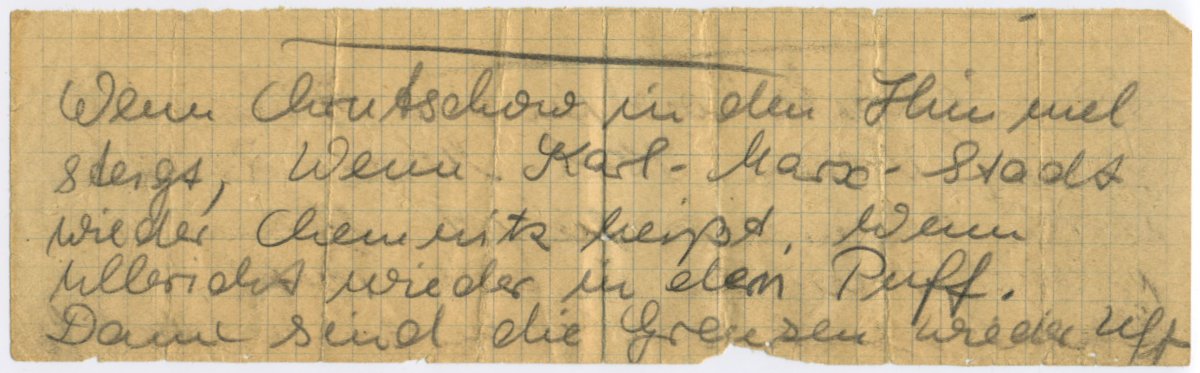 Wenn Chrutschow in den Himmel
steigt, Wenn Karl-Marx-Stadt
wieder Chemnitz heißt. Wenn
Ullericht wieder in dem Puff.
Dann sind die Grenzen wieder uff